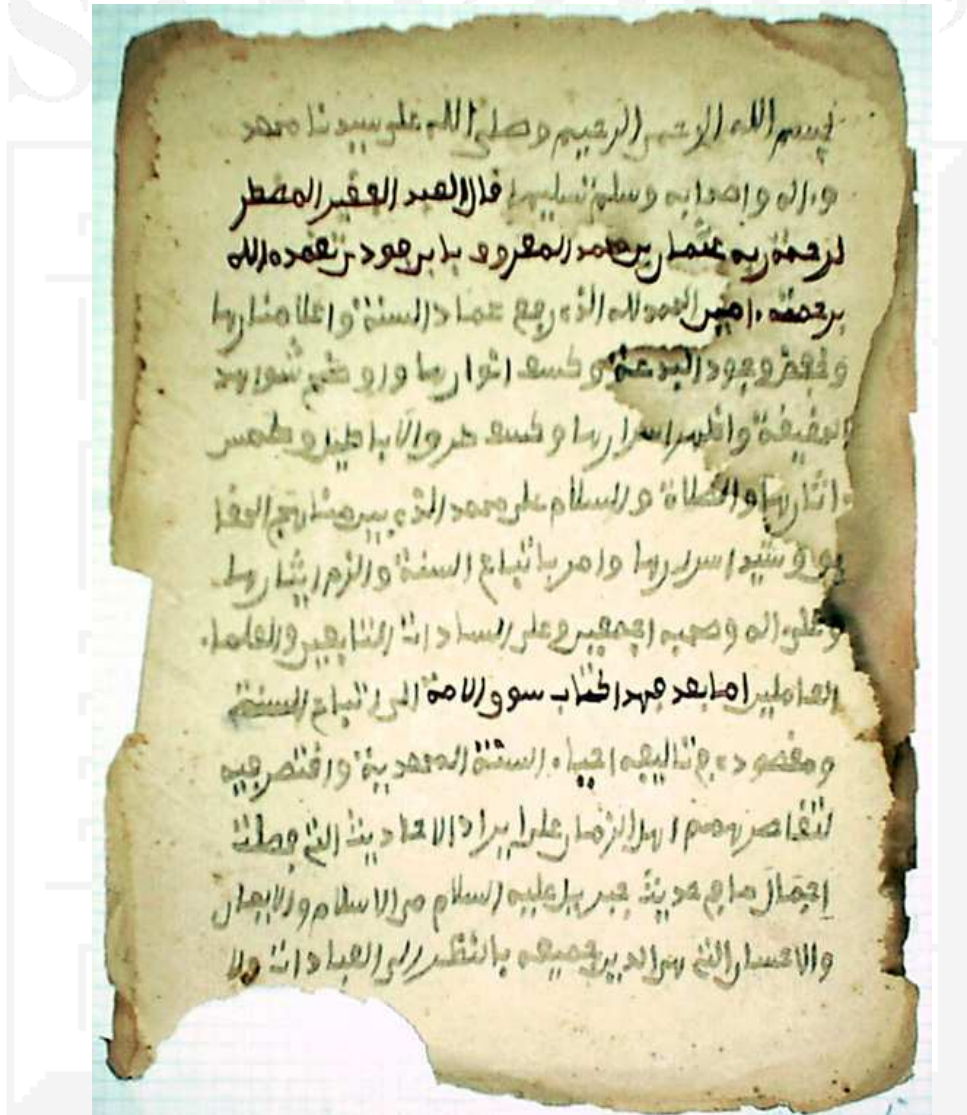 بسم الله الرحمن الرحيم وصلى الله على سيدنا محمد
وءاله واصحابه وسلم تسليما قال العبد الفقير المضطر
لرحمة ربه عثمان بن محمد المعروف بابن فودي تغمده الله
برحمته ءامين الحمد لله الذي رفع عماد السنة واعلا منارها
وخفض وجود البدعة وكسف انوارها واوضح شواهد
الحقيقة واظهر اسرارها وكسف طرو الاباطيل وطمس
ءاثارها والصلاة والسلام على محمد الذي بين مناهج الحقا
يق وشيد اسرارها وامر باتباع السنة والزم ايثارها
وعلى ءاله وصحبه اجمعين وعلى السادات التابعين والعلماء
العاملين اما بعد فهذا كتاب سوق الامة الى اتباع السنة
ومقصودي في تاليفه احياء السنة المحمدية واقتصر فيه
لتقاصر همم اهل الزمان على ايراد الاحاديث التي فصلت
اجمال ما في حديث جبريل عليه السلام من الاسلام والايمان
والاحسان التي هي الدين جميعه بالنظر الى العبادات ولا